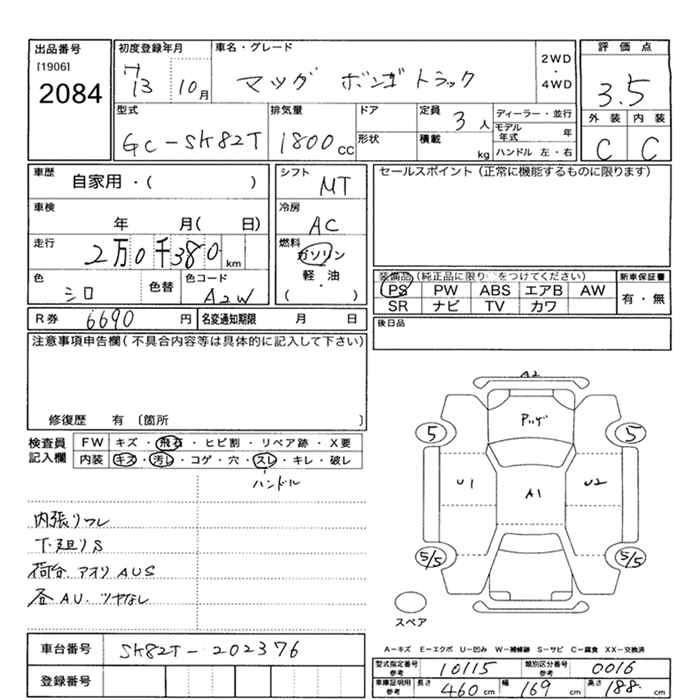 出品番号 初度登録年月 車名・グレード 2WD・4WD 評価点
[1906]
2084
H13 10月 マツダ ボンゴトラック 3.5
型式 排気量 ドア 定員 3人 ディーラー・並行 外装 内装
GC-SK82T 1800cc 形状 積載 kg モデル年式 年
ハンドル 左・右 C C
車歴 自家用・( ) シフト MT セールスポイント(正常に機能するものに限ります)
車検 年 月( 日) 冷房 AC
走行 2万0千380km 燃料 ガソリン
軽・油
( )
色 シロ 色替 色コード A2W
装備品(純正品に限り○をつけてください) 新車保証書
PS PW ABS エアB AW 有・無
SR ナビ TV カワ
R券 6690円 名変通知期限 月 日 後日品
注意事項申告欄(不具合内容等は具体的に記入して下さい)
修復歴 有〔箇所 〕
検査員 FW キズ・飛石・ヒビ割・リペア跡・X要
記入欄 内装 キズ・汚レ・コゲ・穴・スレ・キレ・破レ
ハンドル
内張リフレ
下廻りS
荷台 アオリ AUS
各AU. ツヤなし
A2
5 5
U1 A1 U2
5/5 5/5
スペア
A-キズ E-エクボ U-凹み W-補修跡 S-サビ C-腐食 XX-交換済
車台番号 SK82T-202376
登録番号
型式指定番号 参考 10115 類別区分番号 参考 0016
車庫証明用 参考 長さ 460cm 幅 169cm 高さ 188cm